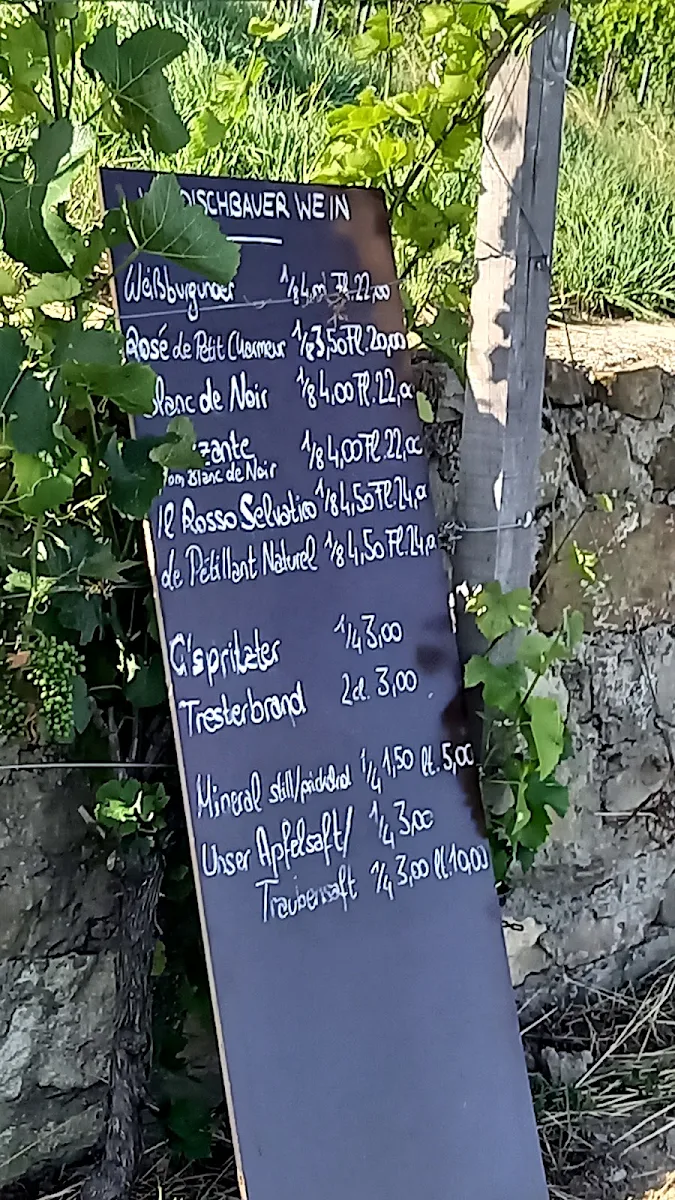 DISCHBAUER WEIN
Weißburgunder 1/8 4,00 Fl. 22,00
Rosé de Petit Charmeur 1/8 3,50 Fl. 20,00
Blanc de Noir 1/8 4,00 Fl. 22,00
zante 1/8 4,00 Fl. 22,00
vom Blanc de Noir
Il Rosso Selvatico 1/8 4,50 Fl. 24,0
de Pétillant Naturel 1/8 4,50 Fl. 24,0
G'spritzter 1/4 3,00
Tresterbrand 2cl. 3,00
Mineral still/prickelnd 1/4 1,50 Fl. 5,00
Unser Apfelsaft/ 1/4 3,00
Traubensaft 1/4 3,00 Fl. 10,00